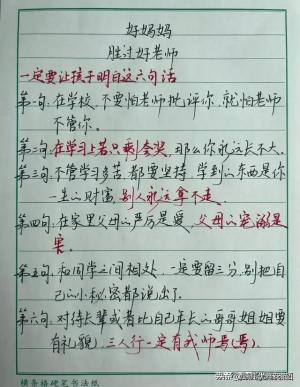 好妈妈
胜过好老师
一定要让孩子明白这六句话
第一句:在学校,不要怕老师批评你,就怕老师
不管你。
第二句:在学习上若只剩夸奖,那么你永远长不大。
第三句:不管学习多苦都要坚持,学到的东西是你
一生的财富,别人永远拿不走。
第四句:在家里父母的严厉是爱,父母的宠溺是
害。
第五句:和同学之间相处,一定要留三分,别把自
己的小秘密都说出了。
第六句:对待长辈或者比自己年长的哥哥姐姐要
有礼貌,三人行一定有我师焉(焉)。
横条格硬笔书法纸